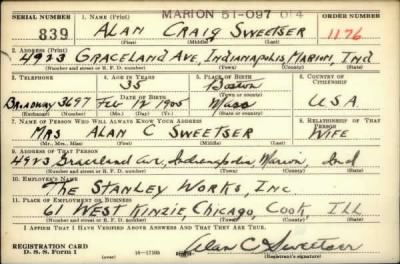 MARION 51-097 014
SERIAL NUMBER 1. NAME (Print) ORDER NUMBER
839 ALAN CRAIG SWEETSER 1176
(First) (Middle) (Last)
2. ADDRESS (Print)
4923 GRACELAND AVE, INDIANAPOLIS, MARION, IND
(Number and street or R. F. D. number) (Town) (County) (State)
3. TELEPHONE 4. AGE IN YEARS 5. PLACE OF BIRTH 6. COUNTRY OF CITIZENSHIP
35 Boston
DATE OF BIRTH (Town or county)
BROADWAY 3697 Feb 12 1905 Mass U.S.A.
(Exchange) (Number) (Mo.) (Day) (Yr.) (State or country)
7. NAME OF PERSON WHO WILL ALWAYS KNOW YOUR ADDRESS 8. RELATIONSHIP OF THAT PERSON
MRS ALAN C SWEETSER WIFE
(Mr., Mrs., Miss) (First) (Middle) (Last)
9. ADDRESS OF THAT PERSON
4923 Graceland Ave, Indianapolis Marion, Ind
(Number and street or R. F. D. number) (Town) (County) (State)
10. EMPLOYER'S NAME
THE STANLEY WORKS, INC
11. PLACE OF EMPLOYMENT OR BUSINESS
61 WEST KINZIE, CHICAGO, COOK, ILL
(Number and street or R. F. D. number) (Town) (County) (State)
I AFFIRM THAT I HAVE VERIFIED ABOVE ANSWERS AND THAT THEY ARE TRUE.
REGISTRATION CARD
D. S. S. Form 1 (over) 16-17105 Alan C Sweetser
(Registrant's signature)